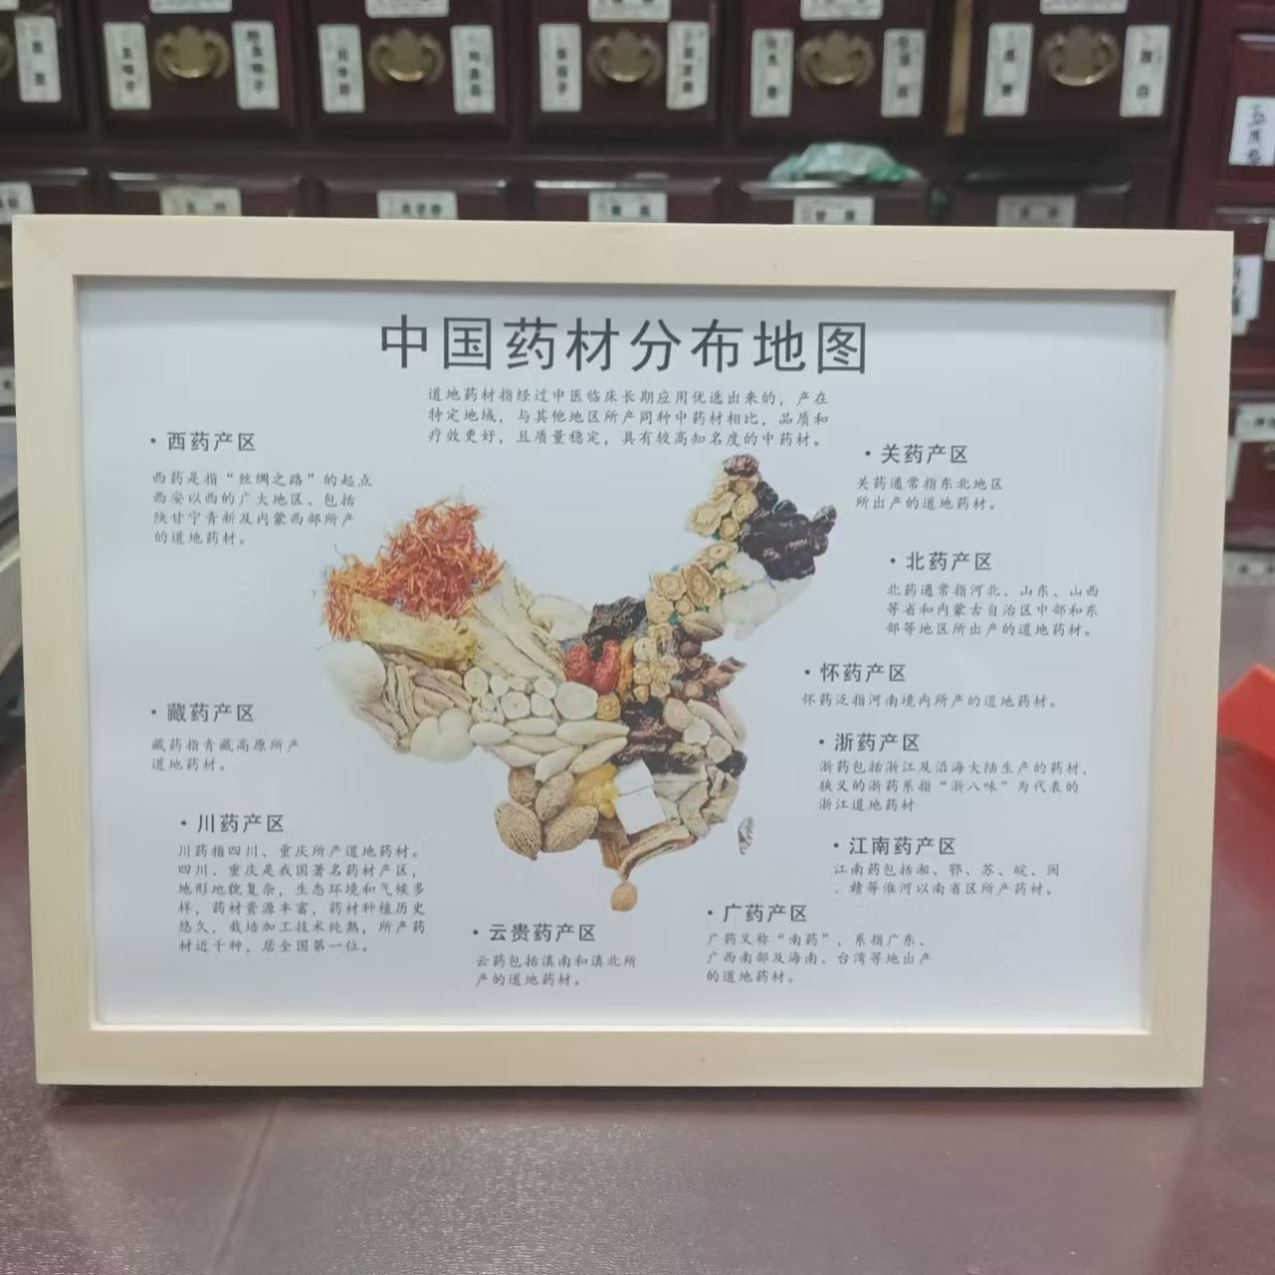 中国药材分布地图
道地药材指经过中医临床长期应用优选出来的，产在
特定地域，与其他地区所产同种中药材相比，品质和
疗效更好，且质量稳定，具有较高知名度的中药材。
·西药产区
西药是指“丝绸之路”的起点
西安以西的广大地区、包括
陕甘宁青新及内蒙西部所产
的道地药材。
·藏药产区
藏药指青藏高原所产
道地药材。
·川药产区
川药指四川、重庆所产道地药材。
四川、重庆是我国著名药材产区，
地形地貌复杂，生态环境和气候多
样，药材资源丰富，药材种植历史
悠久，栽培加工技术纯熟，所产药
材近千种，居全国第一位。
·云贵药产区
云药包括滇南和滇北所
产的道地药材。
·关药产区
关药通常指东北地区
所出产的道地药材。
·北药产区
北药通常指河北、山东、山西
等省和内蒙古自治区中部和东
部等地区所出产的道地药材。
·怀药产区
怀药泛指河南境内所产的道地药材。
·浙药产区
浙药包括浙江及沿海大陆生产的药材，
狭义的浙药系指“浙八味”为代表的
浙江道地药材
·江南药产区
江南药包括湘、鄂、苏、皖、闽
、赣等淮河以南省区所产药材。
·广药产区
广药又称“南药”，系指广东、
广西南部及海南、台湾等地出产
的道地药材。